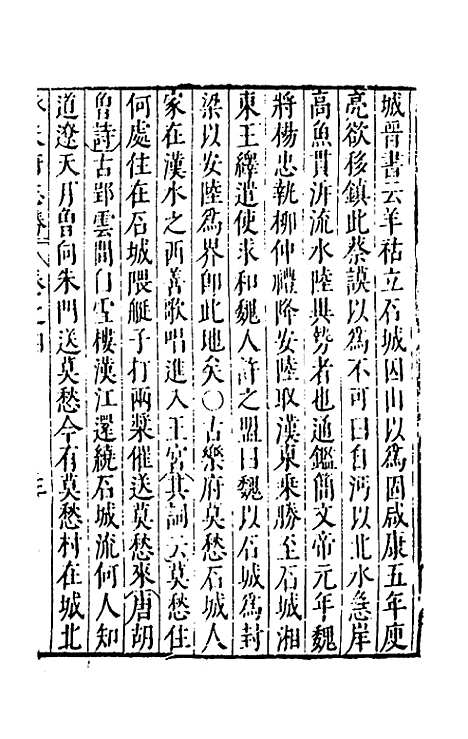 城晉書云羊祜立石城因山以爲固咸康五年庾
亮欲移鎮此蔡謨以爲不可曰自沔以北水急岸
高魚貫泝流水陸異勢者也通鑑簡文帝元年魏
將楊忠執柳仲禮降安陸取漢東乘勝至石城湘
東王繹遣使求和魏人許之盟曰魏以石城爲封
梁以安陸爲界卽此地矣〇古樂府莫愁石城人
家在漢水之西善歌唱進入王宮其詞云莫愁住
何處住在石城隈艇子打兩槳催送莫愁來唐胡
魯詩古郢雲開白雪樓漢江還繞石城流何人知
道遼天月曾向朱門送莫愁今有莫愁村在城北